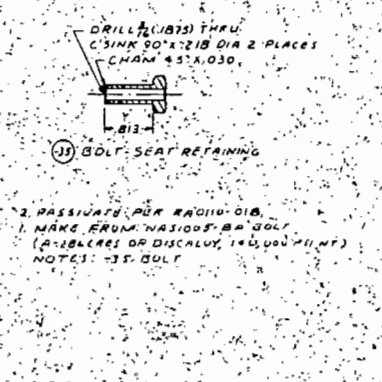 DRILL 3/16 (.1875) THRU
C'SINK 90° X .218 DIA 2 PLACES
CHAM 45° X .030
.813
-35 BOLT-SEAT RETAINING
2. PASSIVATE PER RA0110-018.
1. MAKE FROM NAS1005-8A BOLT
(A-286 CRES OR DISCALOY, 140,000 PSI
NOTES: -35 BOLT